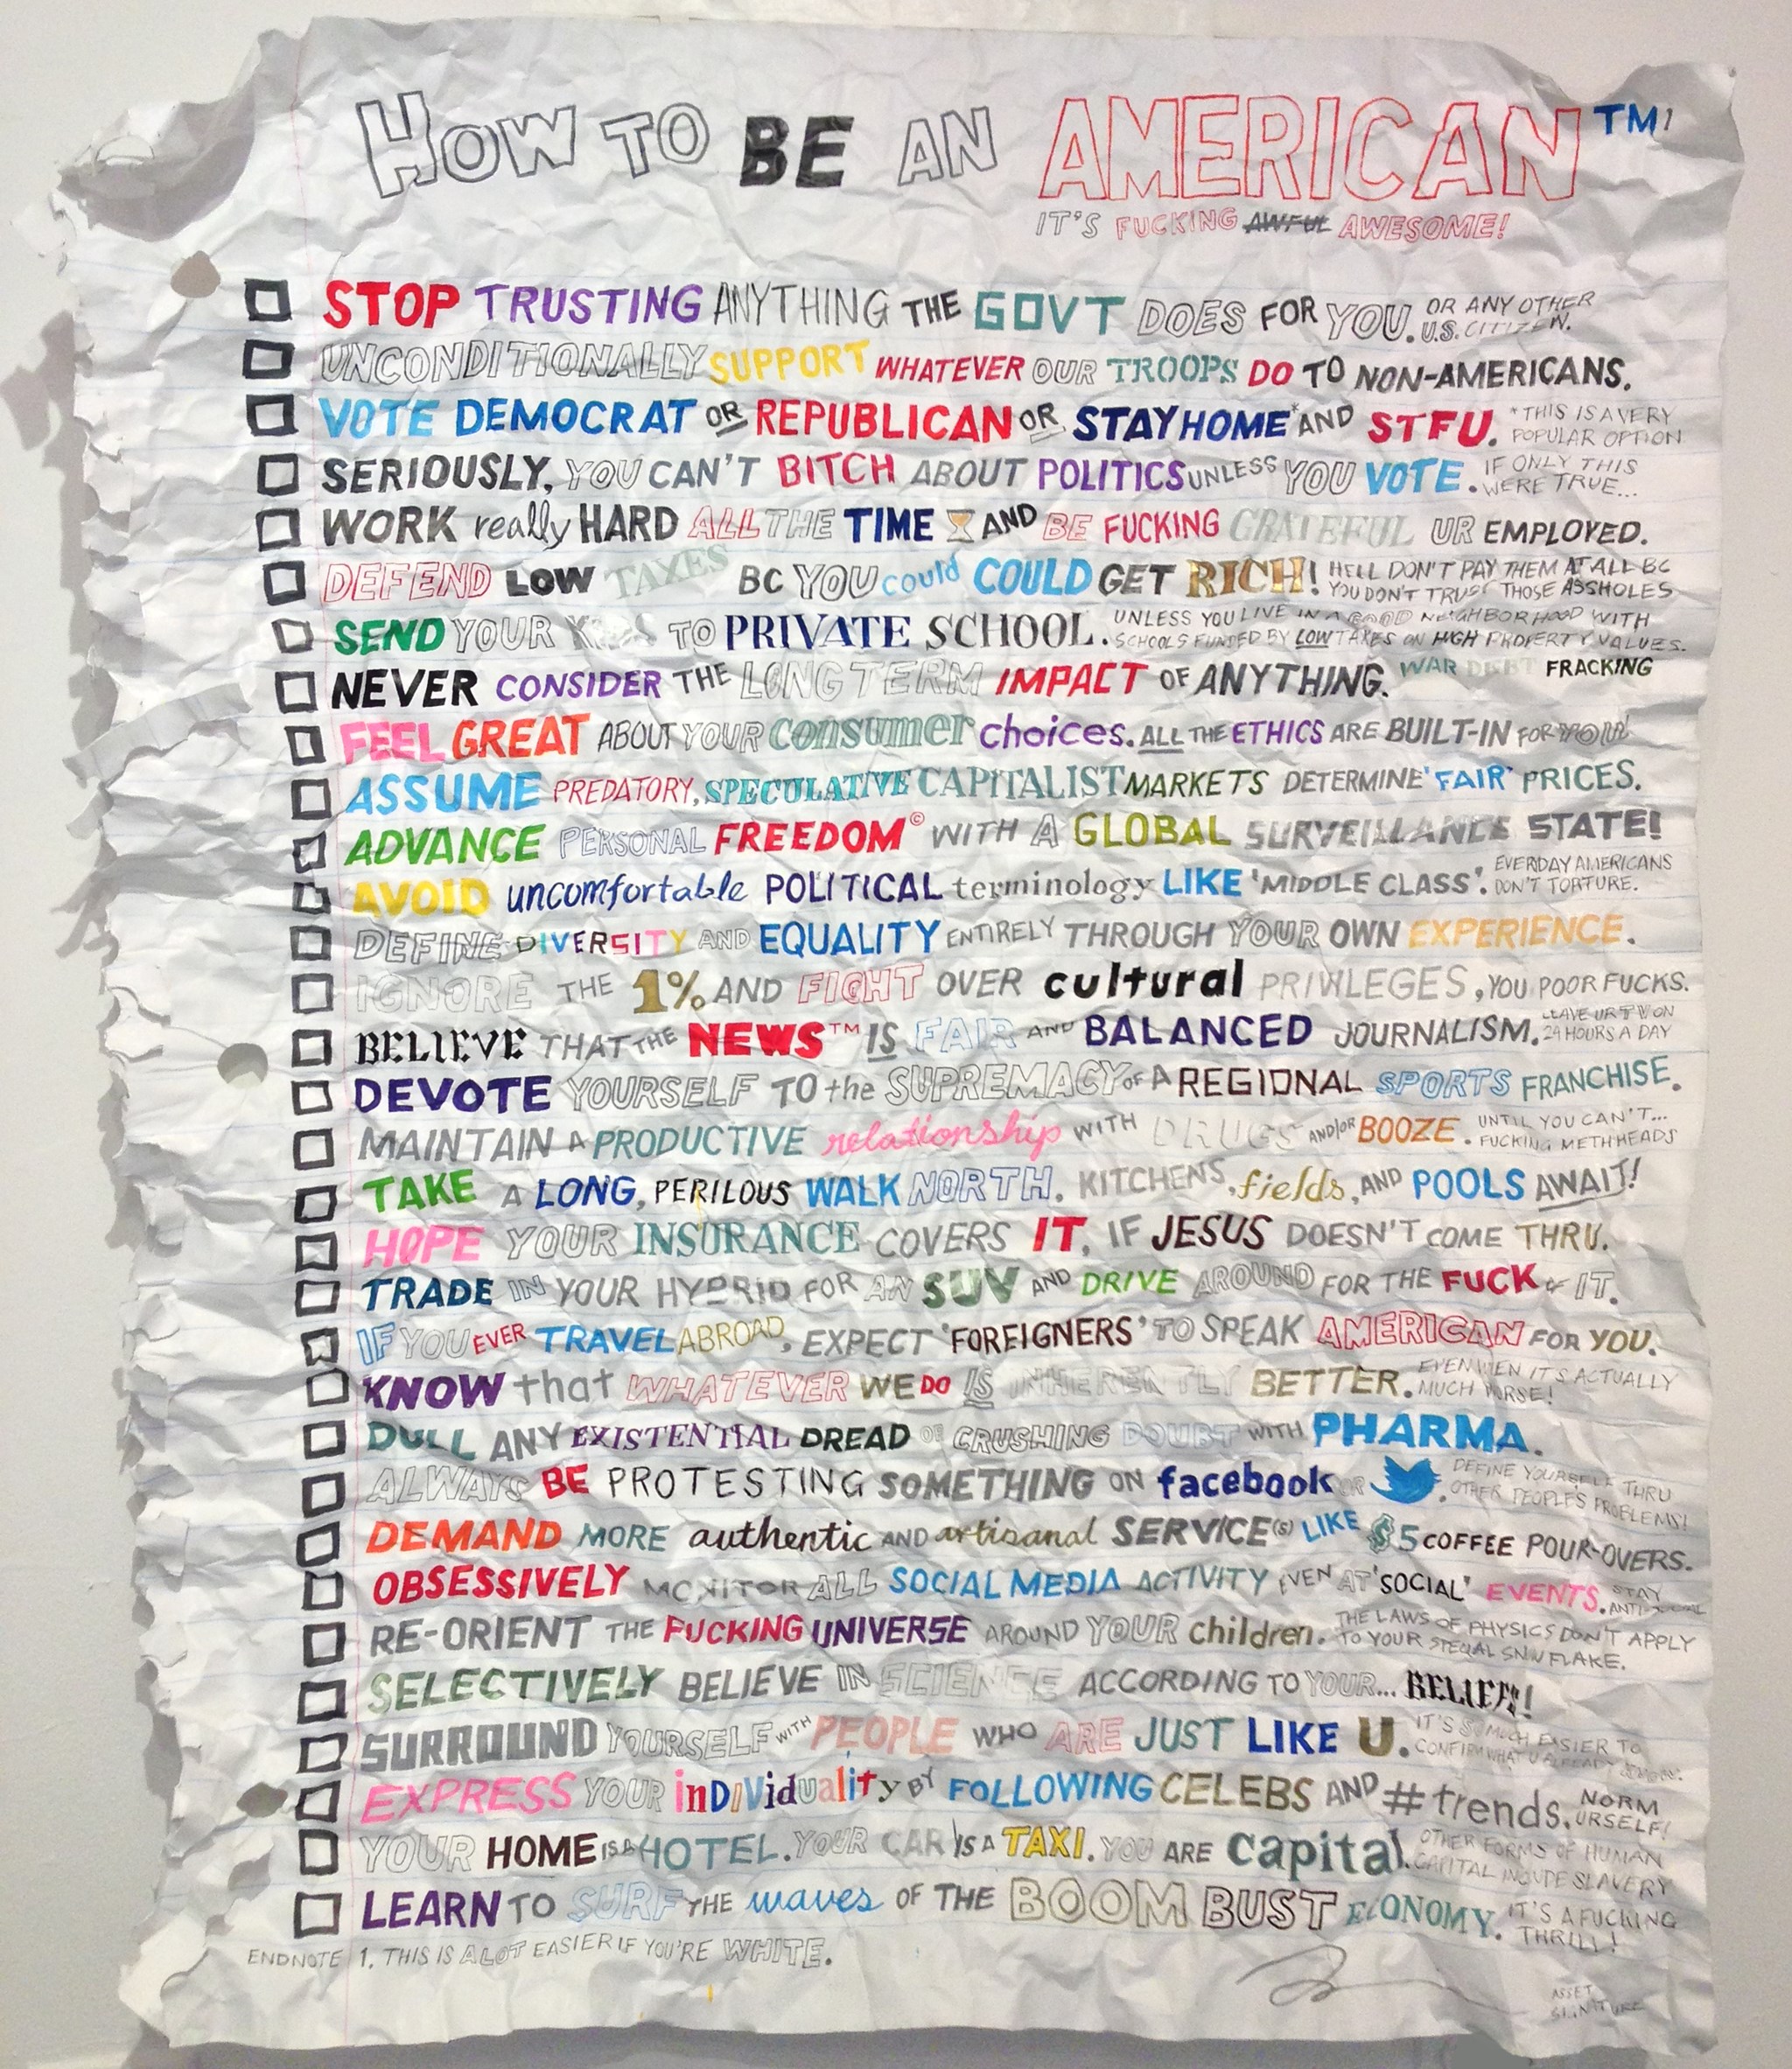 HOW TO BE AN AMERICAN™ 1
IT'S FUCKING AWFUL AWESOME!
STOP TRUSTING ANYTHING THE GOVT DOES FOR YOU. OR ANY OTHER
U.S. CITIZEN.
UNCONDITIONALLY SUPPORT WHATEVER OUR TROOPS DO TO NON-AMERICANS.
VOTE DEMOCRAT OR REPUBLICAN OR STAY HOME* AND STFU. *THIS IS A VERY
POPULAR OPTION
SERIOUSLY, YOU CAN'T BITCH ABOUT POLITICS UNLESS YOU VOTE. IF ONLY THIS
WERE TRUE...
WORK really HARD ALL THE TIME AND BE FUCKING GRATEFUL UR EMPLOYED.
DEFEND LOW TAXES BC YOU could COULD GET RICH! HELL DON'T PAY THEM AT ALL BC
YOU DON'T TRUST THOSE ASSHOLES
SEND YOUR KIDS TO PRIVATE SCHOOL. UNLESS YOU LIVE IN A GOOD NEIGHBORHOOD WITH
SCHOOLS FUNDED BY LOW TAXES ON HIGH PROPERTY VALUES.
NEVER CONSIDER THE LONG TERM IMPACT OF ANYTHING. WAR DEBT FRACKING
FEEL GREAT ABOUT YOUR consumer choices. ALL THE ETHICS ARE BUILT-IN FOR YOU!
ASSUME PREDATORY, SPECULATIVE CAPITALIST MARKETS DETERMINE 'FAIR' PRICES.
ADVANCE PERSONAL FREEDOM© WITH A GLOBAL SURVEILLANCE STATE!
AVOID uncomfortable POLITICAL terminology LIKE 'MIDDLE CLASS'. EVERDAY AMERICANS
DON'T TORTURE.
DEFINE DIVERSITY AND EQUALITY ENTIRELY THROUGH YOUR OWN EXPERIENCE.
IGNORE THE 1% AND FIGHT OVER cultural PRIVILEGES, YOU POOR FUCKS.
BELIEVE THAT THE NEWS™ IS FAIR AND BALANCED JOURNALISM. LEAVE UR TV ON
24 HOURS A DAY
DEVOTE YOURSELF TO the SUPREMACY OF A REGIONAL SPORTS FRANCHISE.
MAINTAIN A PRODUCTIVE relationship WITH DRUGS AND/OR BOOZE. UNTIL YOU CAN'T...
FUCKING METHHEADS
TAKE A LONG, PERILOUS WALK NORTH. KITCHENS, fields, AND POOLS AWAIT!
HOPE YOUR INSURANCE COVERS IT, IF JESUS DOESN'T COME THRU.
TRADE IN YOUR HYBRID FOR AN SUV AND DRIVE AROUND FOR THE FUCK of IT.
IF YOU EVER TRAVEL ABROAD, EXPECT 'FOREIGNERS' TO SPEAK AMERICAN FOR YOU.
KNOW that WHATEVER WE DO IS INHERENTLY BETTER. EVEN WEN IT'S ACTUALLY
MUCH WORSE!
DULL ANY EXISTENTIAL DREAD OR CRUSHING DOUBT WITH PHARMA.
ALWAYS BE PROTESTING SOMETHING ON facebook OR . DEFINE YOURSELF THRU
OTHER PEOPLE'S PROBLEMS!
DEMAND MORE authentic AND artisanal SERVICE(S) LIKE $5 COFFEE POUR-OVERS.
OBSESSIVELY MONITOR ALL SOCIAL MEDIA ACTIVITY EVEN AT 'SOCIAL' EVENTS. STAY
ANTI-SOCIAL
RE-ORIENT THE FUCKING UNIVERSE AROUND YOUR children. THE LAWS OF PHYSICS DON'T APPLY
TO YOUR SPECIAL SNOWFLAKE.
SELECTIVELY BELIEVE IN SCIENCE ACCORDING TO YOUR... BELIEFS!
SURROUND YOURSELF WITH PEOPLE WHO ARE JUST LIKE U. IT'S SO MUCH EASIER TO
CONFIRM WHAT U ALREADY KNOW.
EXPRESS YOUR inDIViduality BY FOLLOWING CELEBS AND #trends. NORM
URSELF!
YOUR HOME IS A HOTEL. YOUR CAR IS A TAXI. YOU ARE Capital. OTHER FORMS OF HUMAN
CAPITAL INCLUDE SLAVERY
LEARN TO SURF THE waves OF THE BOOM BUST ECONOMY. IT'S A FUCKING
THRILL!
ENDNOTE 1. THIS IS A LOT EASIER IF YOU'RE WHITE.
ASSET
SIGNATURE